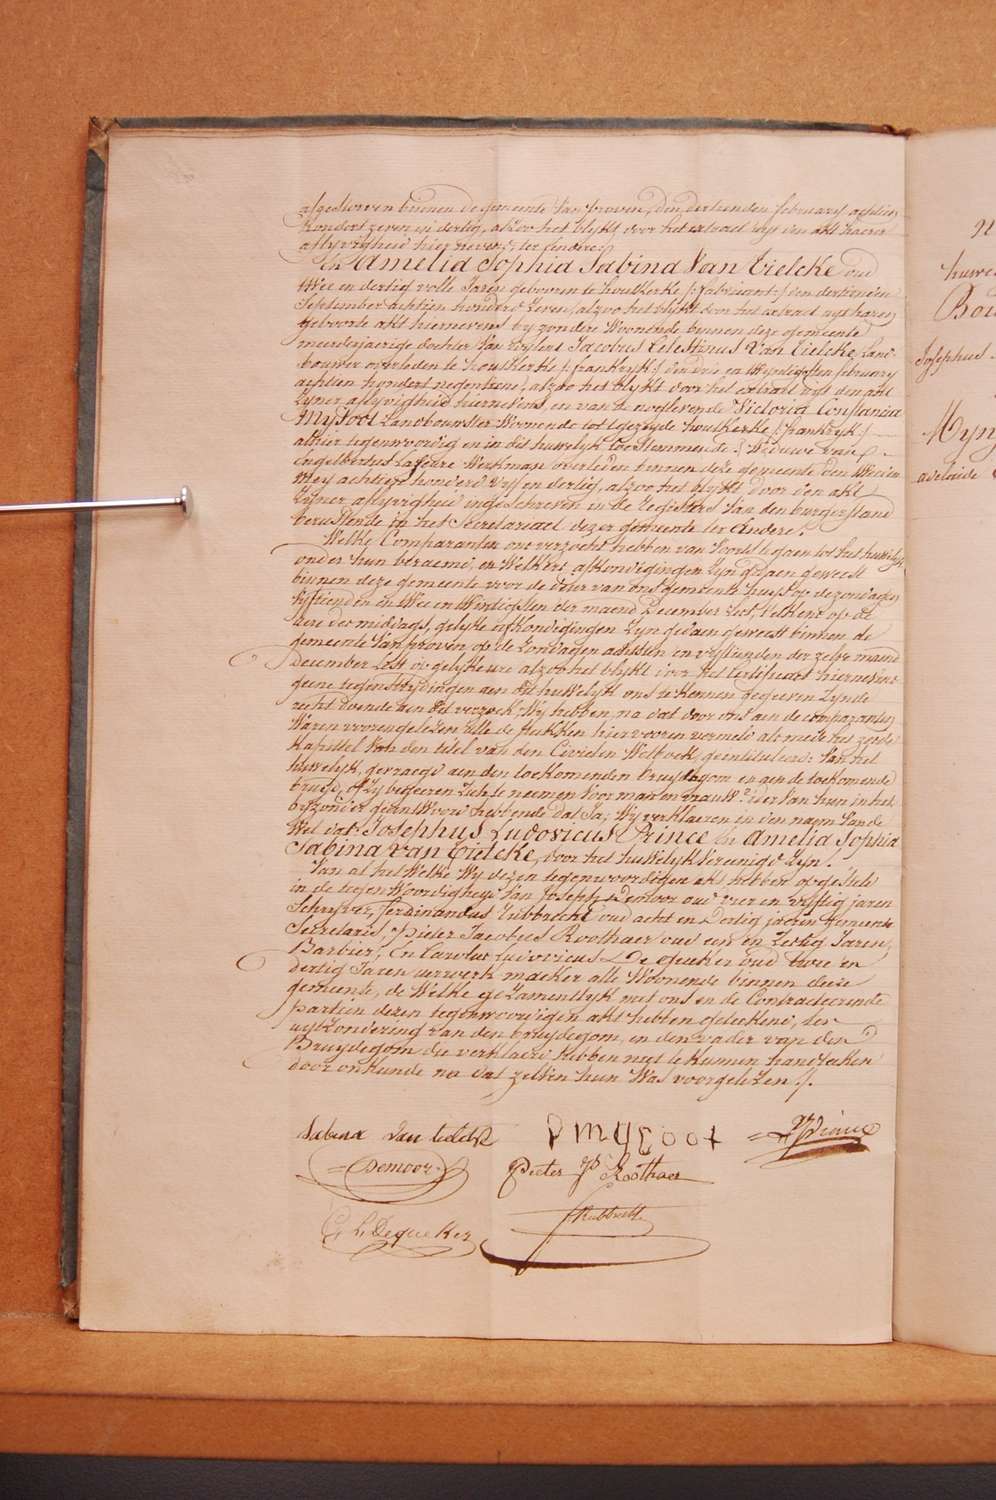 afgestorven binnen de gemeente van Proven, den dertienden february achtien
hondert zeven en dertig, alzoo het blijkt door het extract uijt den akt haerer
aflyvigheid hier nevens, ter eendre;
En Amelia Sophia Sabina Van Tielcke oud
twee en dertig volle Jaren geboren te houtkerke /: frankrijk :/ den dertienden
September achtien hondert zeven, alzoo het blijkt door het extract uyt haren
geboorte akt hiernevens by zondere Woonende binnen deze gemeente
meerderjaerige dochter van wylent Jacobus Celestinus Van Tielcke, Land-
bouwer overleden te houtkerke /: frankryk :/ den drie en twyntigsten february
achtien hondert negentiene, alzoo het blykt door het extract uyt den akt
Zyner aflyvigheid hiernevens, en van de noglevende Victoria Constancia
Mysoot Landbouwster Woonende tot gezeyde houtkerke /: frankryk :/
alhier tegenwoordig en in dit huwelyk toestemmende /: Weduwe van
Engelbertus Lafeure Werkman overleden binnen deze gemeente den
mey achtien hondert vyf en dertig, alzoo het blykt door den akt
Zyner aflyvigheid ingeschreven in de Registers van den burgerstand
berustende in het Secretariaet dezer gemeente ter Andere.
Welke Comparanten ons verzocht hebben van voord te gaen tot het huwelyk
onder hun beraemd, en Welkers afkondigingen Zyn gedaen geweest
binnen deze gemeente voor de deur van ons gemeente huys op de zondagen
vyftienden en twee en twintigsten der maend December lest, telkens op de
ure des middags, gelyke afkondigingen Zyn gedaen geweest binnen de
gemeente van Proven op de Zondagen achtsten en vyftienden der zelve maend
December Lest op gelyke ure alzoo het blykt door het Certificaet hiernevens
geene tegenstrydingen aen dit huwelyk ons te kennen gegeven Zynde
recht doende aen dit verzoek, Wy hebben, na dat door ons aen de comparanten
Waren voorengelezen alle de stukken hiervooren vermeld als mede het zesde
kapittel van den titel van den Civielen Wetboek, geintituleerd: Van het
huwelyk, gevraegd aen den toekomenden bruydegom en aen de toekomende
bruyd, of Zy begeeren Zich te neemen voor man en vrouw? ider van hun in het
byzonder geantwoord hebbende dat Ja; Wy verklaeren in den naem van de
Wet dat Josephus Ludovicus Prince En Amelia Sophia
Sabina Van Tielcke, door het huwelyk vereenigd Zyn.
Van al het Welke Wy dezen tegenwoordigen akt hebben opgesteld
in de tegenwoordigheyd Van Joseph Demoor oud vier en vyftig jaren
Schryver, Ferdinandus Lubbrecht oud acht en Dertig jaeren gemeente
Secretaris, Pieter Jacobus Roothaer oud een en Zestig Jaren,
Barbier, En Carolus Ludovicus De Queker oud twee en
dertig Jaren uerwerk maeker alle Woonende binnen deeze
gemeente, de Welke gezamentlyk met ons en de Contracteerende
partien dezen tegenwoordigen akt hebben geteekend, ter
uytzondering van den bruydegom, en den vader van den
Bruydegom die verklaerd hebben niet te kunnen handteeken
door onkunde na dat zelven hun Was voorgelezen /.
Sabina Van tielcke VMYSOOT
Demoor Pieter Js Roothaer
C. L. Dequeker Lubbrecht
huwe
Bou
Josephus
Myn
adelaide